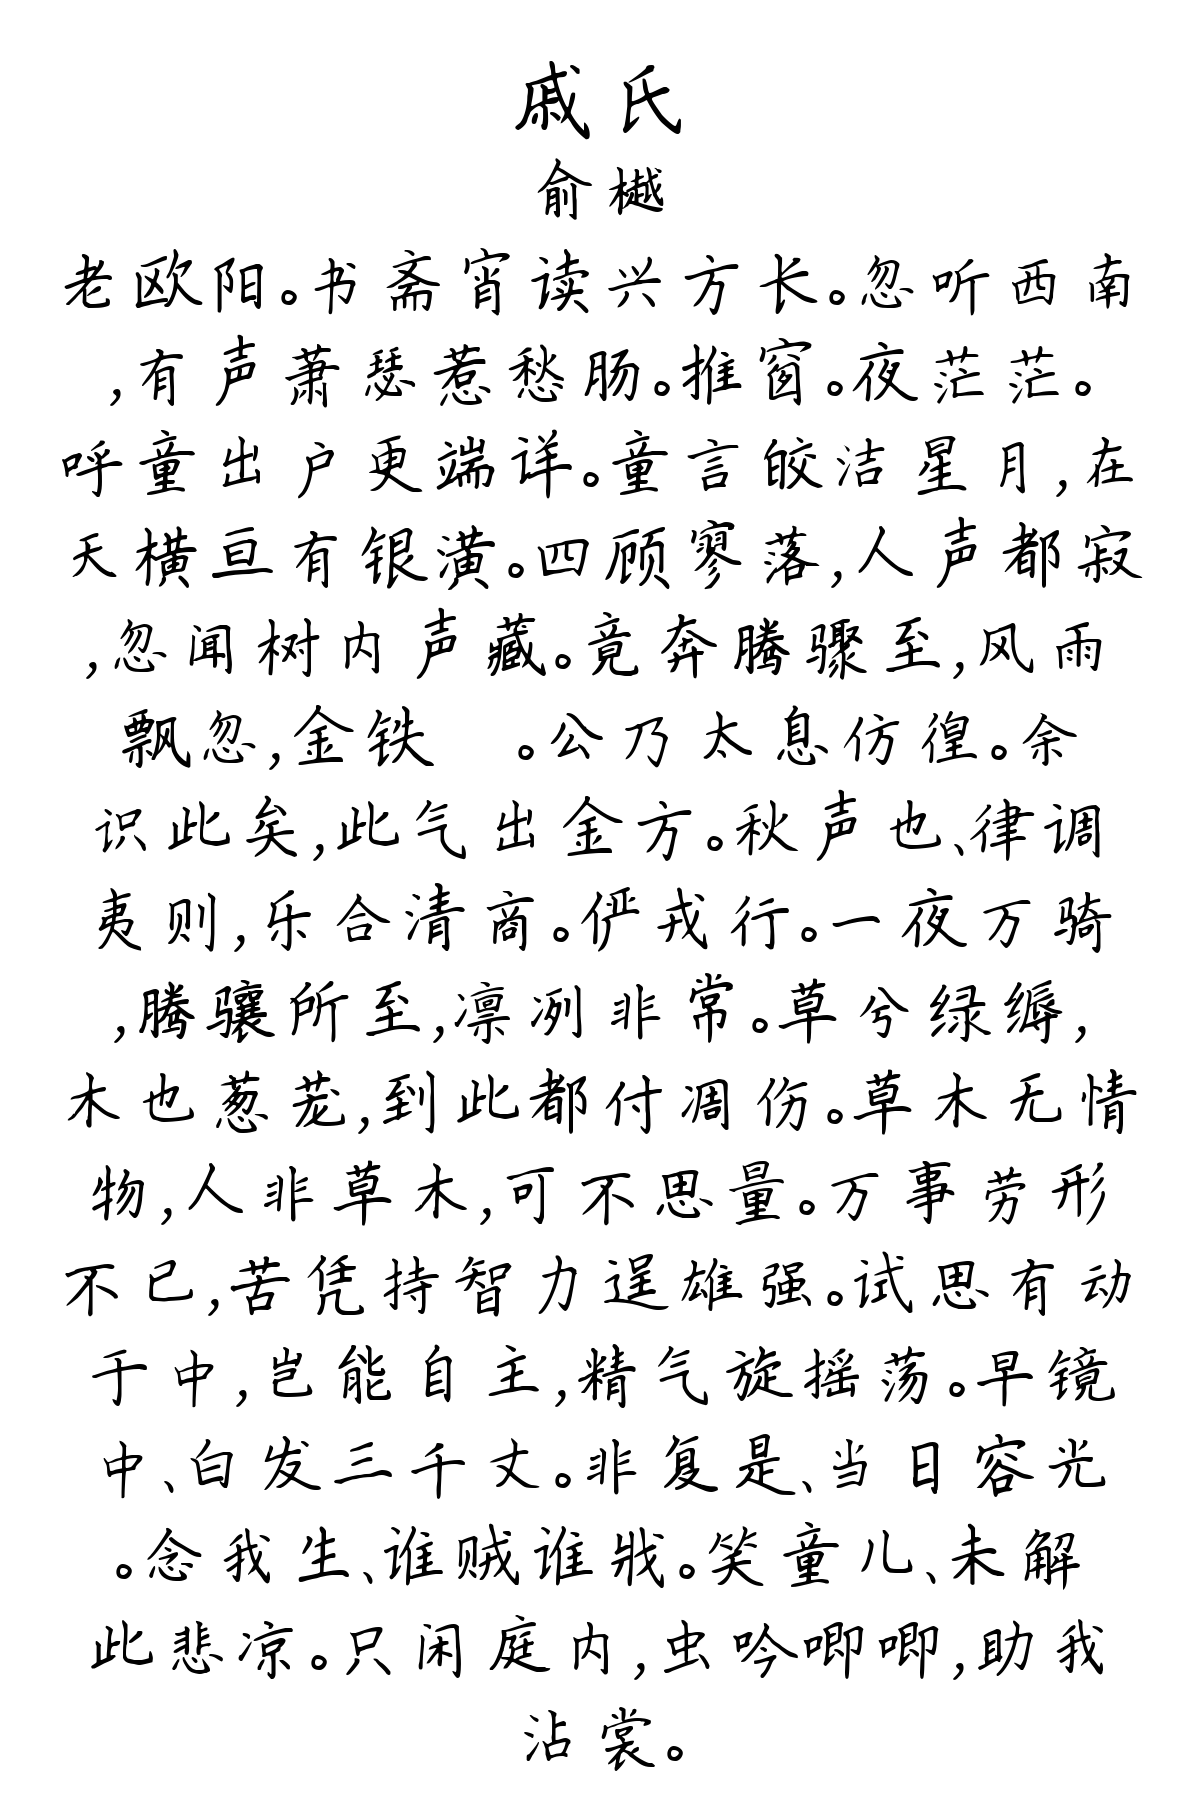 戚氏
俞樾
老欧阳。书斋宵读兴方长。忽听西南
,有声萧瑟惹愁肠。推窗。夜茫茫。
呼童出户更端详。童言皎洁星月,在
天横亘有银潢。四顾寥落,人声都寂
,忽闻树内声藏。竟奔腾骤至,风雨
飘忽,金铁 。公乃太息仿徨。余
识此矣,此气出金方。秋声也、律调
夷则,乐合清商。俨戎行。一夜万骑
,腾骧所至,凛冽非常。草兮绿缛,
木也葱茏,到此都付凋伤。草木无情
物,人非草木,可不思量。万事劳形
不已,苦凭持智力逞雄强。试思有动
于中,岂能自主,精气旋摇荡。早镜
中、白发三千丈。非复是、当日容光
。念我生、谁贼谁戕。笑童儿、未解
此悲凉。只闲庭内,虫吟唧唧,助我
沾裳。